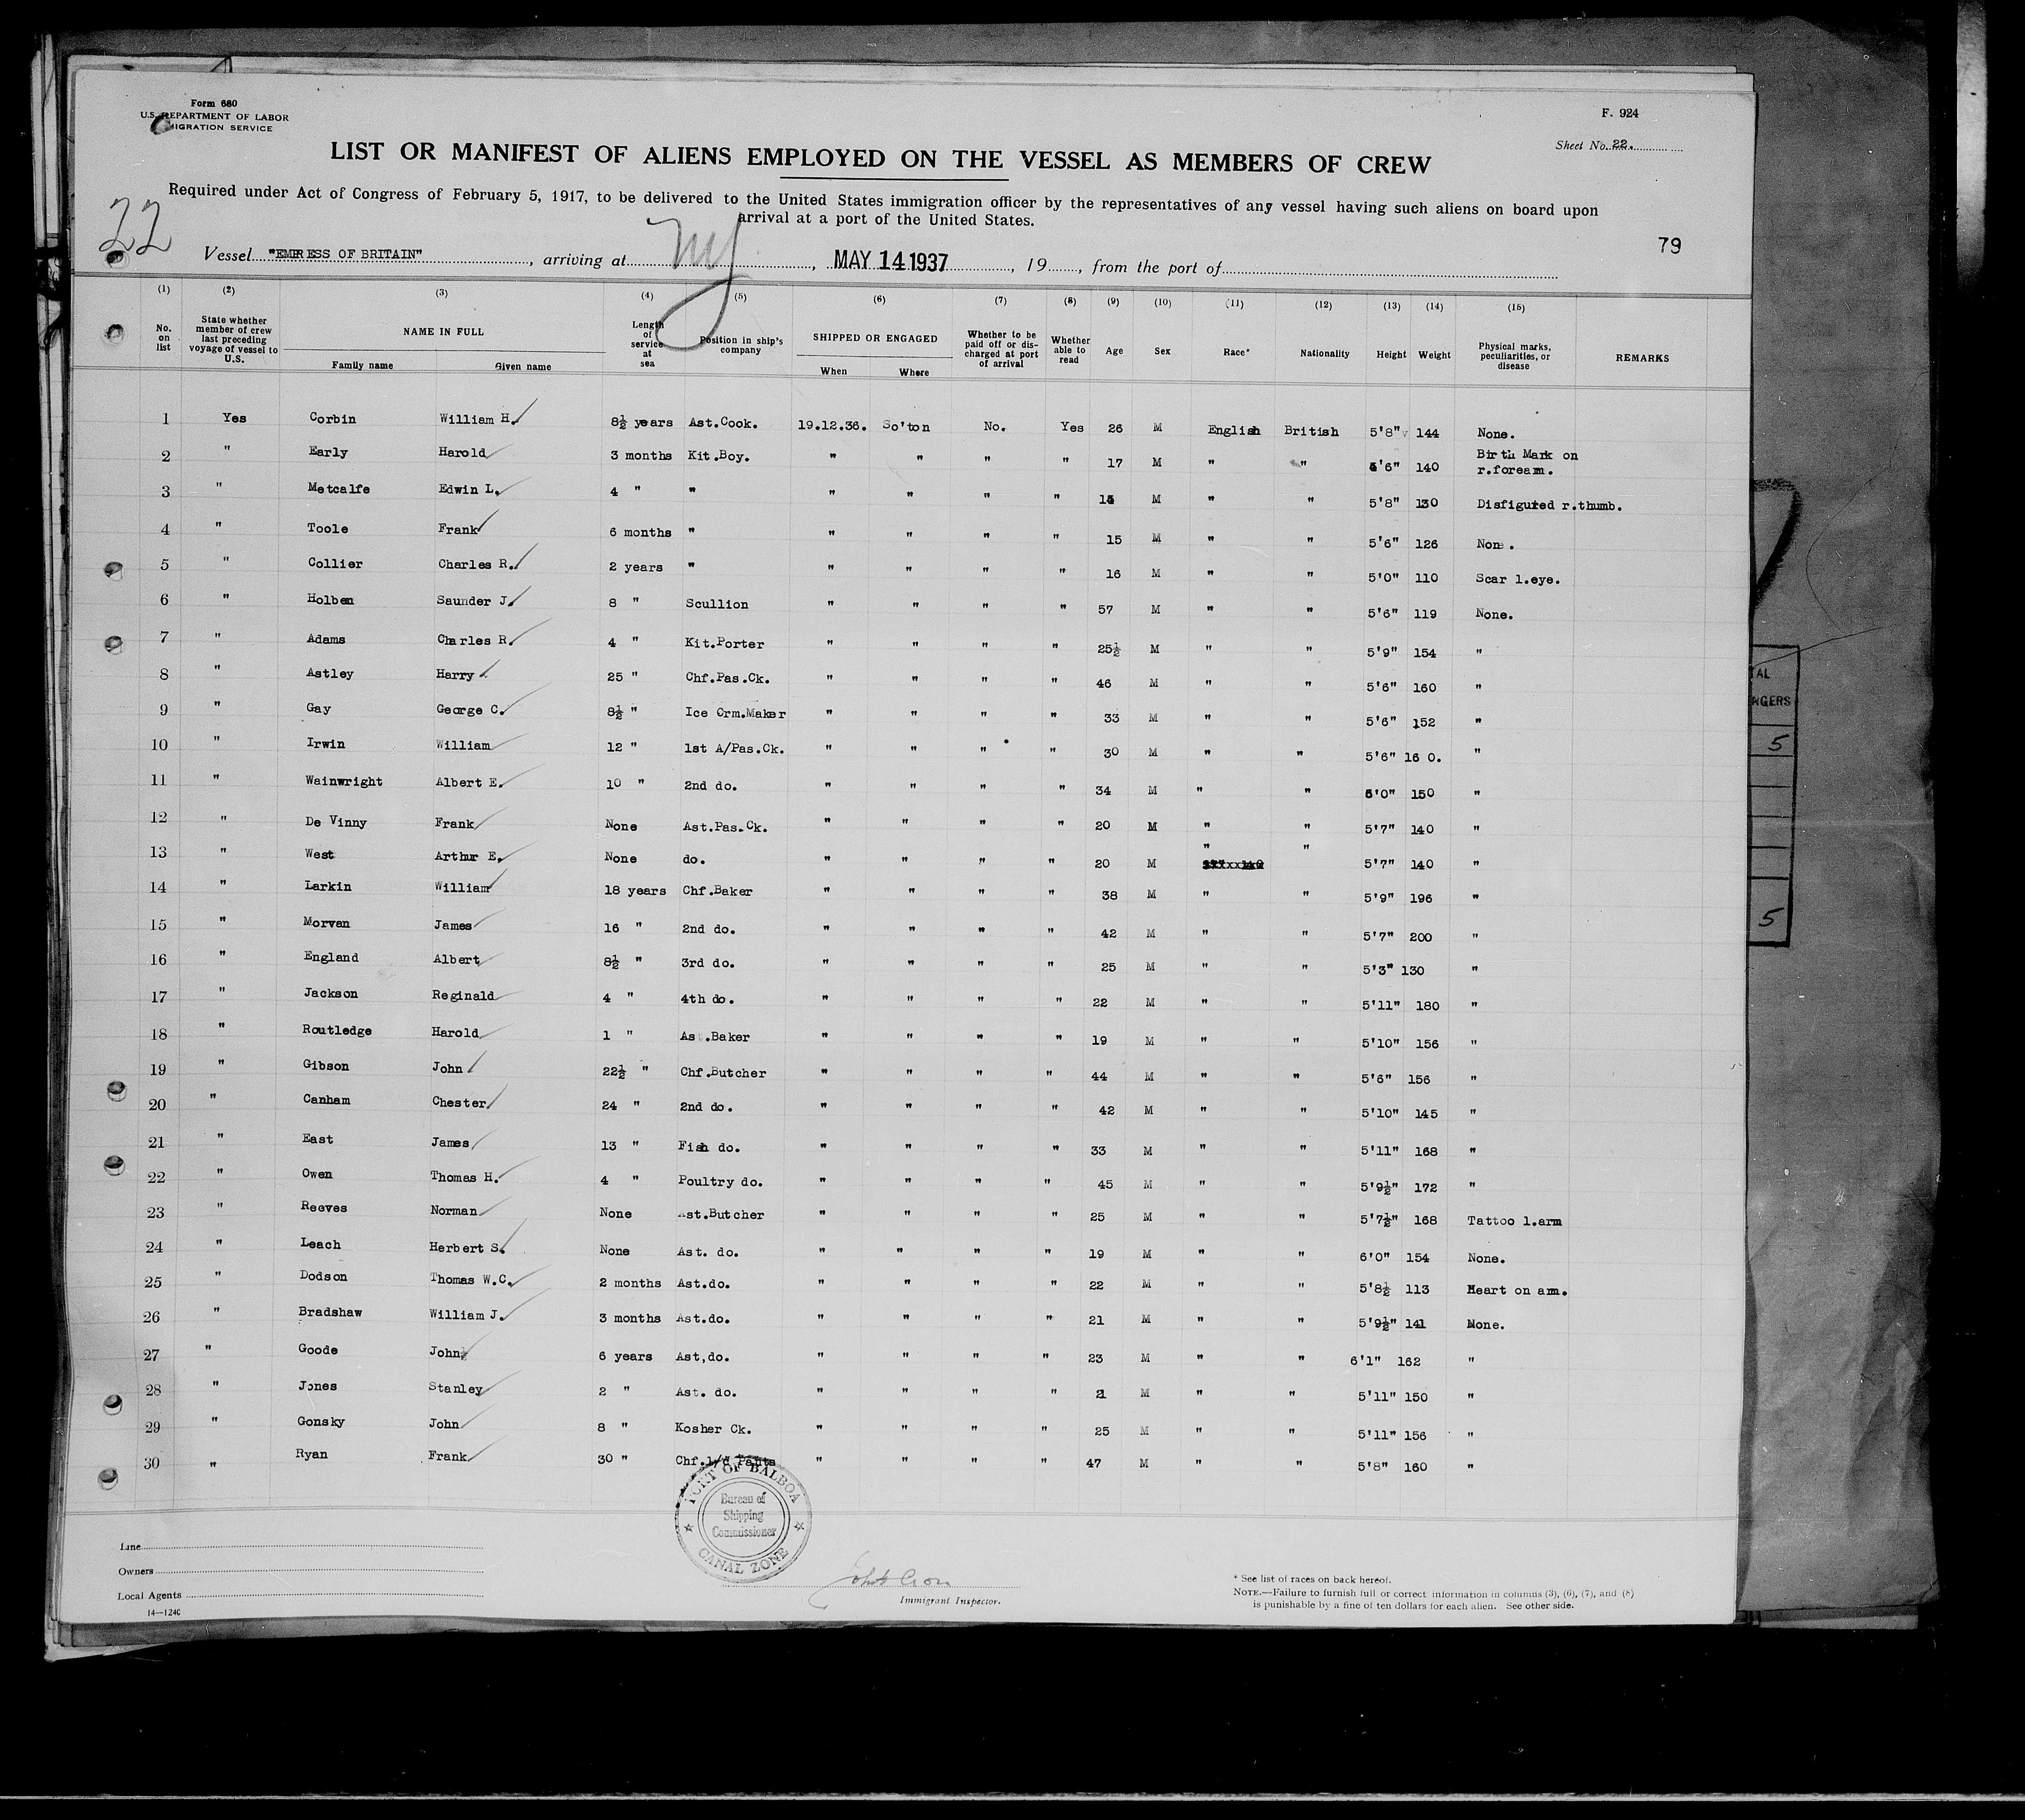 Form 680
U.S. DEPARTMENT OF LABOR
IMMIGRATION SERVICE
F. 924
Sheet No. 22.
LIST OR MANIFEST OF ALIENS EMPLOYED ON THE VESSEL AS MEMBERS OF CREW
Required under Act of Congress of February 5, 1917, to be delivered to the United States immigration officer by the representatives of any vessel having such aliens on board upon
arrival at a port of the United States.
22
79
Vessel "EMPRESS OF BRITAIN", arriving at NY, MAY 14 1937, 19, from the port of
(1) (2) (3) (4) (5) (6) (7) (8) (9) (10) (11) (12) (13) (14) (15)
No. on list State whether member of crew last preceding voyage of vessel to U.S. NAME IN FULL Family name Given name Length of service at sea Position in ship's company SHIPPED OR ENGAGED When Where Whether to be paid off or discharged at port of arrival Whether able to read Age Sex Race* Nationality Height Weight Physical marks, peculiarities, or disease REMARKS
1 Yes Corbin William H. 8½ years Ast.Cook. 19.12.36. So'ton No. Yes 26 M English British 5'8" 144 None.
2 " Early Harold 3 months Kit.Boy. " " " " 17 M " " 5'6" 140 Birth Mark on r.foream.
3 " Metcalfe Edwin L. 4 " " " " " " M " " 5'8" 130 Disfigured r.thumb.
4 " Toole Frank 6 months " " " " " 15 M " " 5'6" 126 None.
5 " Collier Charles R. 2 years " " " " " 16 M " " 5'0" 110 Scar l.eye.
6 " Holben Saunder J. 8 " Scullion " " " " 57 M " " 5'6" 119 None.
7 " Adams Charles R. 4 " Kit.Porter " " " " 25½ M " " 5'9" 154 "
8 " Astley Harry 25 " Chf.Pas.Ck. " " " " 46 M " " 5'6" 160 "
9 " Gay George C. 8½ " Ice Crm.Maker " " " " 33 M " " 5'6" 152 "
10 " Irwin William 12 " 1st A/Pas.Ck. " " " " 30 M " " 5'6" 16 0. "
11 " Wainwright Albert E. 10 " 2nd do. " " " " 34 M " " 6'0" 150 "
12 " De Vinny Frank None Ast.Pas.Ck. " " " " 20 M " " 5'7" 140 "
13 " West Arthur E. None do. " " " " 20 M " " 5'7" 140 "
14 " Larkin William 18 years Chf.Baker " " " " 38 M " " 5'9" 196 "
15 " Morvan James 16 " 2nd do. " " " " 42 M " " 5'7" 200 "
16 " England Albert 8½ " 3rd do. " " " " 25 M " " 5'3" 130 "
17 " Jackson Reginald 4 " 4th do. " " " " 22 M " " 5'11" 180 "
18 " Routledge Harold 1 " As .Baker " " " " 19 M " " 5'10" 156 "
19 " Gibson John 22½ " Chf.Butcher " " " " 44 M " " 5'6" 156 "
20 " Canham Chester 24 " 2nd do. " " " " 42 M " " 5'10" 145 "
21 " East James 13 " Fish do. " " " " 33 M " " 5'11" 168 "
22 " Owen Thomas H. 4 " Poultry do. " " " " 45 M " " 5'9½" 172 "
23 " Reeves Norman None Ast.Butcher " " " " 25 M " " 5'7½" 168 Tattoo l.arm
24 " Leach Herbert S. None Ast. do. " " " " 19 M " " 6'0" 154 None.
25 " Dodson Thomas W.C. 2 months Ast.do. " " " " 22 M " " 5'8½ 113 Heart on arm.
26 " Bradshaw William J. 3 months Ast.do. " " " " 21 M " " 5'9½" 141 None.
27 " Goode John 6 years Ast,do. " " " " 23 M " " 6'1" 162 "
28 " Jones Stanley 2 " Ast. do. " " " " 21 M " " 5'11" 150 "
29 " Gonsky John 8 " Kosher Ck. " " " " 25 M " " 5'11" 156 "
30 " Ryan Frank 30 " Chf. Pants " " " " 47 M " " 5'8" 160 "
PORT OF BALBOA
Bureau of
Shipping
Commissioner
CANAL ZONE
Line
Owners
Local Agents
14—1240
Immigrant Inspector.
* See list of races on back hereof.
NOTE.—Failure to furnish full or correct information in columns (3), (6), (7), and (8)
is punishable by a fine of ten dollars for each alien. See other side.
5
5